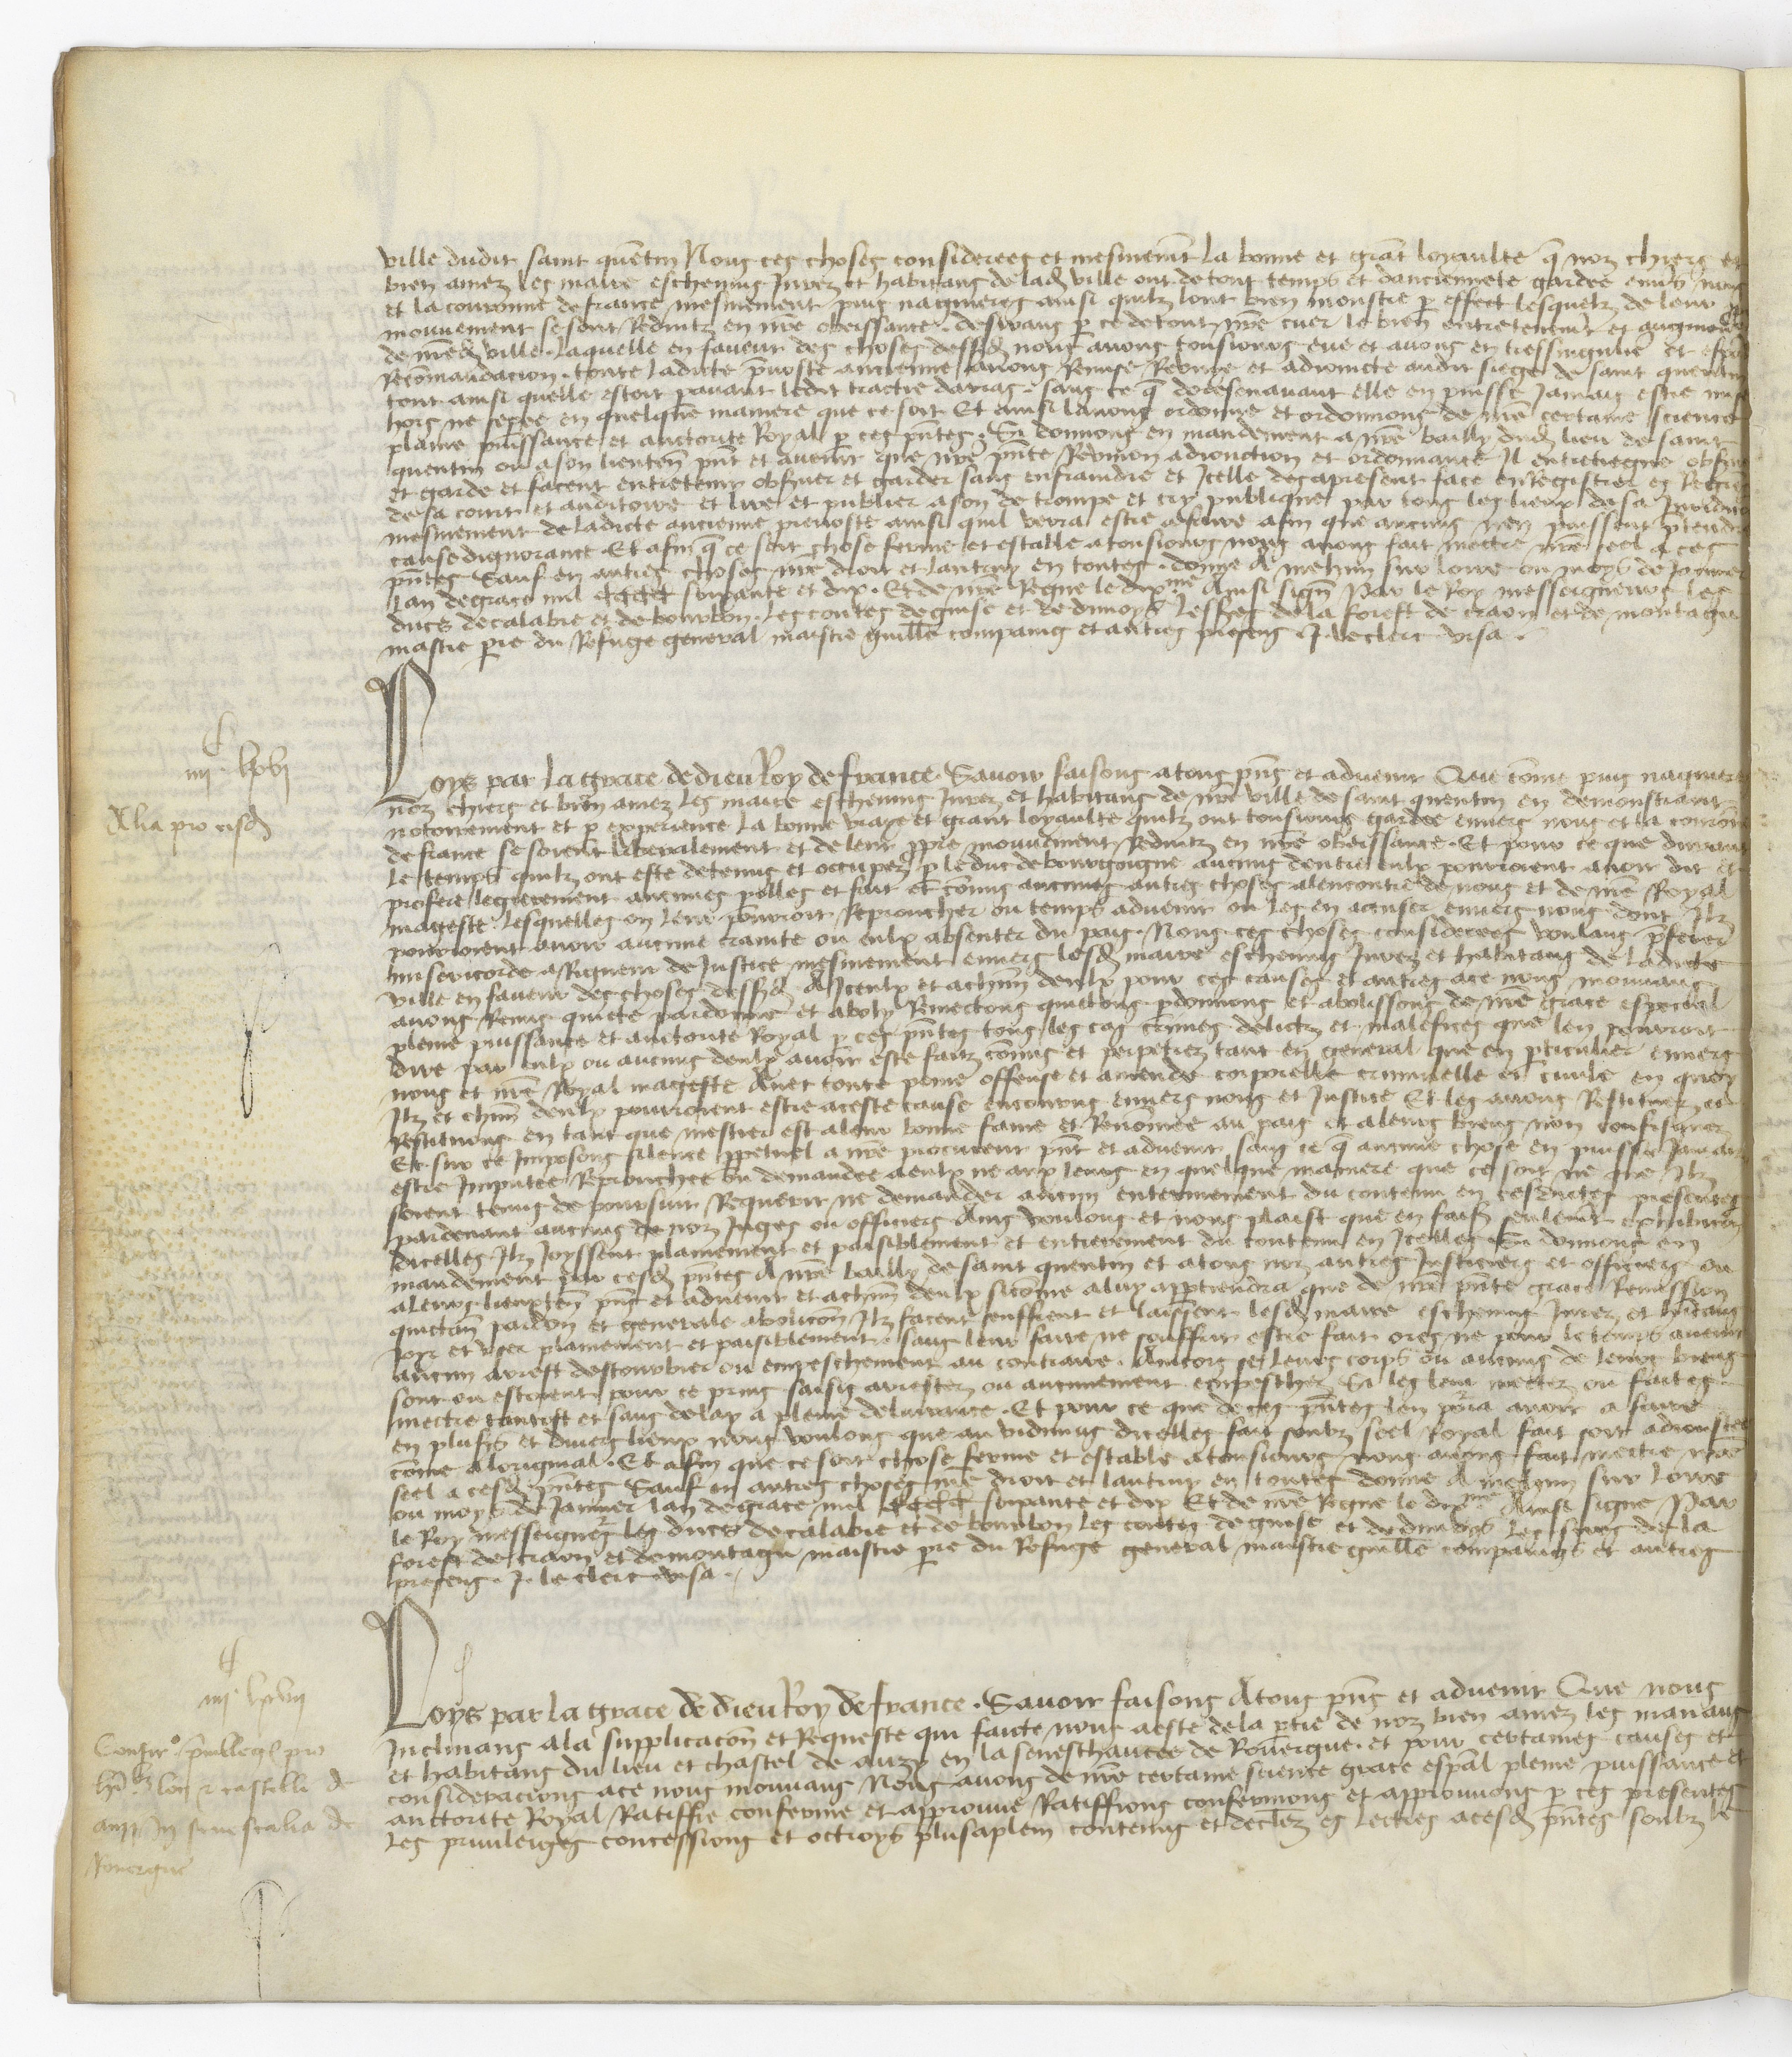 ville dudit saint quentin Nous ces choses considerees et mesmemt la bonne et grat loyaulte q noz chiers et
bien amez les maire eschevins Jurez et habitans de lad ville ont de tout temps et danciennete gardee envs nous
et la couronne de france mesmement puis nagueres ainsi quilz lont bien monstre p effect lesquelz de leur
mouvement se sont Reduitz en nre obeissance. desirans p ce de tout nre cuer le bien entretenemt et augmen
de nred ville. laquelle en faveur des choses dessusd nous avons tousiours eue et avons en tressinguliere et espal
Recommandacion. toute ladicte pvoste ancienne avons Remise Reunye et adioincte audit siege de saint quentin
tout ainsi quelle estoit pavant ledit traictie darras. sans ce q doresenavant elle en puisse Jamais estre mise
hors ne sepee en quelque maniere que ce soit Et ainsi lavons ordonne et ordonnons de nre certaine science
plaine puissance et auctorite Royal p ces pntes. Si donnons en mandement a nre bailly dud lieu de saint
quentin ou a son lieuten pnt et avenir que nre pnte Reunion adionction et ordonnance Il entretiegne obsve
et garde et facent entretenir obsver et garder sans enfraindre et Icelle des apresent face enregistrer es Regres
de sa court et auditoire et lire et publier a son de trompe et cry publique par tous les lieux de sa Juridion
mesmement de ladicte ancienne prevoste ainsi quil verra estre afaire afin que aucuns nen puissent ptendre
cause dignorance. Et afin q ce soit chose ferme et estable a tousiours nous avons fait mectre nre seel a ces
pntes Sauf en autres choses nre droit et lautruy en toutes. donne A mehun sur loire ou moys de Janvier
Lan de grace mil cccc soixante et dix. Et de nre Regne le dixme Ainsi sign Par le Roy messeigneurs les
ducs de calabre et de bourbon. les contes de guise et de dunoys Les srs de la forest de craon et de montagu
maistre pre du Refuge general maistre guille compaing et autres presens. J. leclerc visa.
iiiic lxvi
Alia pro eisd
Loys par la grace de dieu Roy de france. Savoir faisons a tous pns et advenir Que come puis naguere
noz chiers et bien amez les maire eschevins Jurez et habitans de nre ville de saint quentin en demonstrant
notoirement et p experience la bonne vraye et grant loyaulte quilz ont tousiours gardee envers nous et la couron
de france se soient liberalement et de leur ppre mouvement Reduitz en nre obeissance. Et pour ce que durant
le temps quilz ont este detenus et occupez p le duc de bourgoigne aucuns dentre eulx pourroient avoir dit et
profere legierement aucunes polles et fait et comis aucunes autres choses alencontre de nous et de nre Royal
mageste. lesquelles on leur pourroit Reproucher ou temps advenir ou les en acuser envers nous dont Ilz
pourroient avoir aucune crainte ou eulx absenter du pais. Nous ces choses considerees voulans pferer
misericorde a Rigueur de Justice mesmement envers lesd maire eschevins Jurez et habitans de ladicte
ville en faveur des choses dessusd A Iceulx et achun deulx pour ces causes et autres ace nous mouvans
avons Remis quicte pardonne et aboly Remectons quictons pdonnons et abolissons de nre grace especial
pleine puissance et auctorite Royal p ces pntes tous les cas crimes delictz et malefices que len pourroit
dire par eulx ou aucuns deulx avoir este faitz comis et perpetrez tant en general que en pticulier envers
nous et nre Royal mageste Avec toute peine offense et amende corporelle criminelle et civile en quoy
Ilz et chun deulx pourroient estre aceste cause encouruz envers nous et Justice Et les avons Restituez et
Restituons en tant que mestier est a leur bonne fame et Renomee au pais et aleurs biens non confisquez
Et sur ce Imposons silence ppetuel a nre procureur pnt et advenir sans ce q aucune chose en puisse Jamais
estre Imputee Reprouchee ou demandee a eulx ne aux leurs en quelque maniere que ce soit ne que Ilz
soient tenus de poursuir Requerir ne demander aucun enterinement du contenu en cesdictes presentes
pardevant aucuns de noz Juges ou officiers Ains voulons et nous plaist que en fais seulemt exhibicion
dicelles Ilz Joyssent plainement et paisiblement et entierement du contenu en Icelles Si donnons en
mandement par cesd pntes A nre bailly de saint quentin et a tous noz autres Justiciers et officiers ou
aleurs lieuxten pns et advenir et achun deulx sicome aluy apptiendra que de nre pnte grace Remission
quictan pardon et generale abolicon Ilz facent seuffrent et laissent lesd maire eschevins Jurez et hitans
Joyr et user plainement et paisiblement. sans leur faire ne souffrir estre fait ores ne pour le temps avenir
aucun arrest destourbier ou empeschement au contraire. Aincois se leurs corps ou aucuns de leurs biens
sont ou estoient pour ce prins saisis arrestez ou aucunement empeschez Si les leur mectez ou faites
mectre tantost et sans delay a pleine delivrance. Et pour ce que de ces pntes len pourra avoir a faire
en plusrs et divers lieux nous voulons que au vidimus dicelles fait soubz seel Royal foit soit adioustee
come a loriginal. Et afin que ce soit chose ferme et estable a tousiours nous avons fait mectre nre
seel a cesd pntes Sauf en autres choses nre droit et lautruy en toutes donne A mehun sur loire
ou moys de Janvier lan de grace mil cccc soixante et dix Et de nre Regne le dixme Ainsi signe Par
le Roy messeigners les ducs de calabre et de bourbon les contes de guise et de dunoys Les sires de la
forest de craon et de montagu maistre pre du Refuge general maistre guille compaings et autres
presens. J. le clerc visa.
iiiic lxvii
Confir privillegi pro
hitbz loci et castelli de
auzy In senescalia de
Rouergue
Loys par la grace de dieu Roy de france. Savoir faisons A tous pns et advenir Que nous
Inclinans ala supplicacon et Requeste qui faicte nous a este de la ptie de noz bien amez les manans
et habitans du lieu et chastel de auzy en la seneschaucee de Rouergue. et pour certaines causes et
consideracions ace nous mouvans Nous avons de nre certaine science grace espal pleine puissance et
auctorite Royal Ratiffie conferme et approuve Ratiffions confermons et approuvons p ces presentes
Les privileiges concessions et octroys plusaplein contenus et declez es lectres acesd pntes soubz le